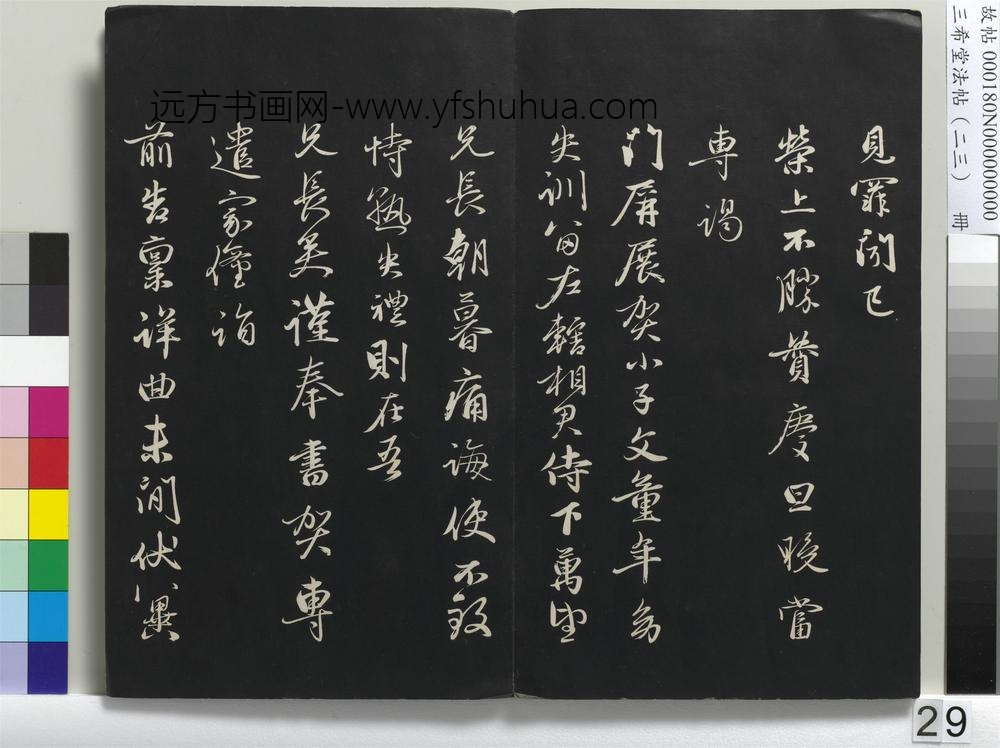 見罪閤已
榮上不勝賛慶旦晚當
專謁
門屏展賀小子文童年幼
失訓為左轄相君侍下萬望
兄長朝暮痛誨使不致
恃執失禮則在吾
兄長矣謹奉書賀專
遣家僮詣
前告稟詳曲未間伏冀
远方书画网-www.yfshuhua.com
故帖 000180N000000000
三希堂法帖（二三） 冊
29